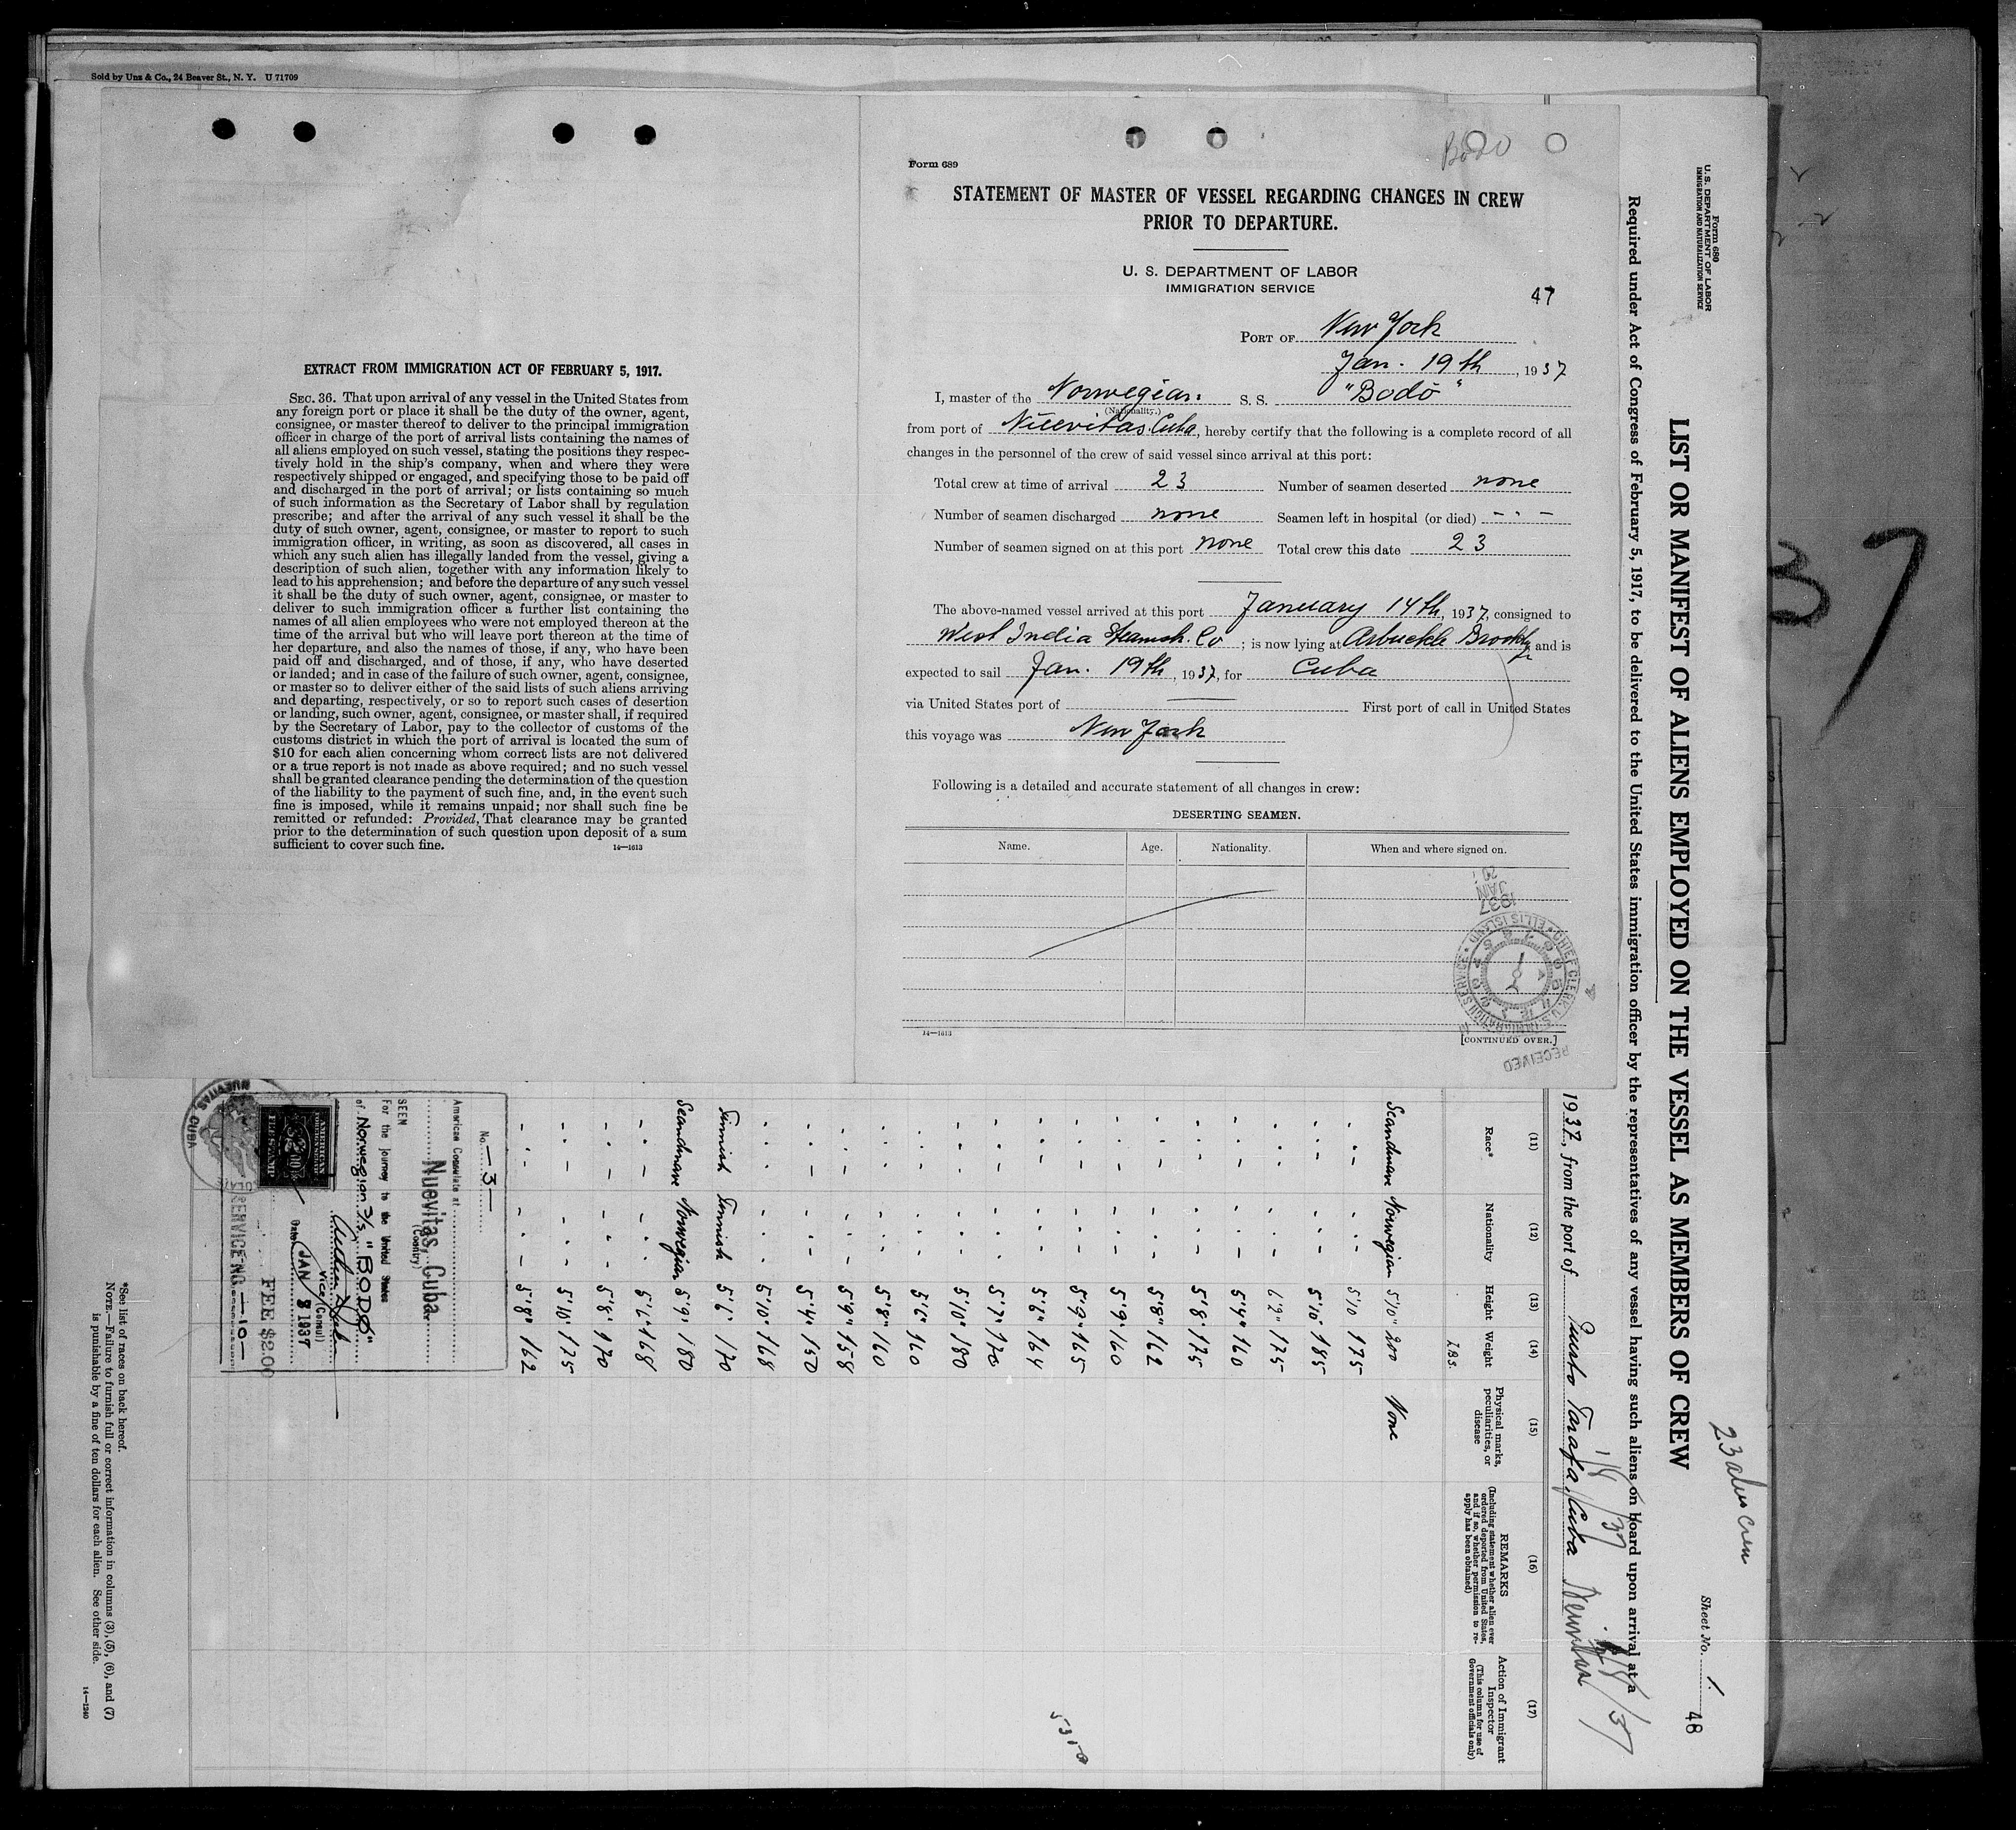 Sold by Unz & Co., 24 Beaver St., N. Y. U 71709
EXTRACT FROM IMMIGRATION ACT OF FEBRUARY 5, 1917.
SEC. 36. That upon arrival of any vessel in the United States from
any foreign port or place it shall be the duty of the owner, agent,
consignee, or master thereof to deliver to the principal immigration
officer in charge of the port of arrival lists containing the names of
all aliens employed on such vessel, stating the positions they respec-
tively hold in the ship's company, when and where they were
respectively shipped or engaged, and specifying those to be paid off
and discharged in the port of arrival; or lists containing so much
of such information as the Secretary of Labor shall by regulation
prescribe; and after the arrival of any such vessel it shall be the
duty of such owner, agent, consignee, or master to report to such
immigration officer, in writing, as soon as discovered, all cases in
which any such alien has illegally landed from the vessel, giving a
description of such alien, together with any information likely to
lead to his apprehension; and before the departure of any such vessel
it shall be the duty of such owner, agent, consignee, or master to
deliver to such immigration officer a further list containing the
names of all alien employees who were not employed thereon at the
time of the arrival but who will leave port thereon at the time of
her departure, and also the names of those, if any, who have been
paid off and discharged, and of those, if any, who have deserted
or landed; and in case of the failure of such owner, agent, consignee,
or master so to deliver either of the said lists of such aliens arriving
and departing, respectively, or so to report such cases of desertion
or landing, such owner, agent, consignee, or master shall, if required
by the Secretary of Labor, pay to the collector of customs of the
customs district in which the port of arrival is located the sum of
$10 for each alien concerning whom correct lists are not delivered
or a true report is not made as above required; and no such vessel
shall be granted clearance pending the determination of the question
of the liability to the payment of such fine, and, in the event such
fine is imposed, while it remains unpaid; nor shall such fine be
remitted or refunded: Provided, That clearance may be granted
prior to the determination of such question upon deposit of a sum
sufficient to cover such fine. 14—1613
Bodo
Form 689
STATEMENT OF MASTER OF VESSEL REGARDING CHANGES IN CREW
PRIOR TO DEPARTURE.
U. S. DEPARTMENT OF LABOR
IMMIGRATION SERVICE
47
PORT OF New York
Jan. 19th, 1937
I, master of the Norwegian S. S. "Bodö"
(Nationality.)
from port of Nuevitas Cuba, hereby certify that the following is a complete record of all
changes in the personnel of the crew of said vessel since arrival at this port:
Total crew at time of arrival 23 Number of seamen deserted none
Number of seamen discharged none Seamen left in hospital (or died) - - -
Number of seamen signed on at this port none Total crew this date 23
The above-named vessel arrived at this port January 14th, 1937, consigned to
West India Steamsh. Co; is now lying at Arbuckle Brooklyn and is
expected to sail Jan. 19th, 1937, for Cuba
via United States port of First port of call in United States
this voyage was New York
Following is a detailed and accurate statement of all changes in crew:
DESERTING SEAMEN.
Name. Age. Nationality. When and where signed on.
14—1613
[CONTINUED OVER.]
RECEIVED
CHIEF CLERK U.S. IMMIGRATION SERVICE ELLIS ISLAND
1937 JAN 20
37
Form 680
U. S. DEPARTMENT OF LABOR
IMMIGRATION AND NATURALIZATION SERVICE
23 alien crew
Sheet No. 1
48
LIST OR MANIFEST OF ALIENS EMPLOYED ON THE VESSEL AS MEMBERS OF CREW
Required under Act of Congress of February 5, 1917, to be delivered to the United States immigration officer by the representatives of any vessel having such aliens on board upon arrival at a
1/8/37
1937, from the port of Puerto Tarafa, Cuba Nuevitas 1/8/37
(11) (12) (13) (14) (15) (16) (17)
Race* Nationality Height Weight Physical marks, peculiarities, or disease
REMARKS
(Including statement whether alien ever ordered deported from United States, and if so, whether permission to re-apply has been obtained)
Action of Immigrant Inspector
(This column for use of Government officials only)
LBS.
Scandinave Norwegian 5'10" 200 None
- - - - - - 5'10 175
- - - - - - 5'10" 185
- - - - - - 6'2" 175
- - - - - - 5'4" 160
- - - - - - 5'8" 175
- - - - - - 5'8" 162
- - - - - - 5'9" 160
- - - - - - 5'9" 165
- - - - - - 5'6" 164
- - - - - - 5'7" 170
- - - - - - 5'10" 180
- - - - - - 5'6" 160
- - - - - - 5'8" 160
- - - - - - 5'9" 158
- - - - - - 5'4" 150
- - - - - - 5'10" 168
Finnish Finnish 5'6" 170
Scandinave Norwegian 5'9" 180
- - - - - - 5'6" 168
- - - - - - 5'8" 170
- - - - - - 5'10" 175
- - - - - - 5'8" 162
No. —3—
American Consulate at
Nuevitas, Cuba
(Country)
SEEN
For the journey to the United States
of Norwegian S/S "BODØ"
Vice (Consul)
Date JAN 8 1937
AMERICAN FOREIGN SERVICE
FEE STAMP
NUEVITAS, CUBA
SERVICE NO. —10—
FEE $2.00
*See list of races on back hereof.
NOTE.—Failure to furnish full or correct information in columns (3), (5), (6), and (7)
is punishable by a fine of ten dollars for each alien. See other side.
14—1240